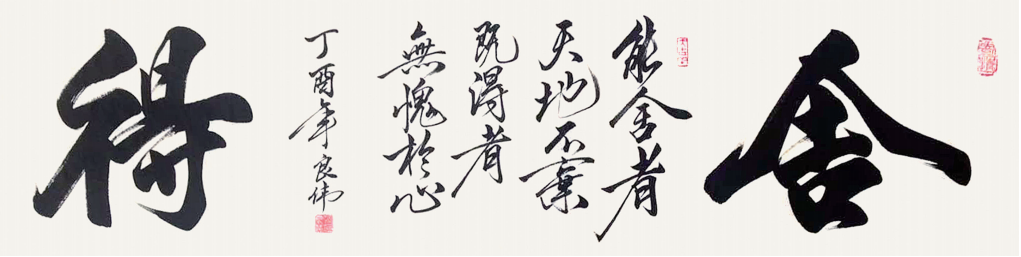 舍
能舍者
天地不棄
既得者
無愧於心
得
丁酉年 良偉